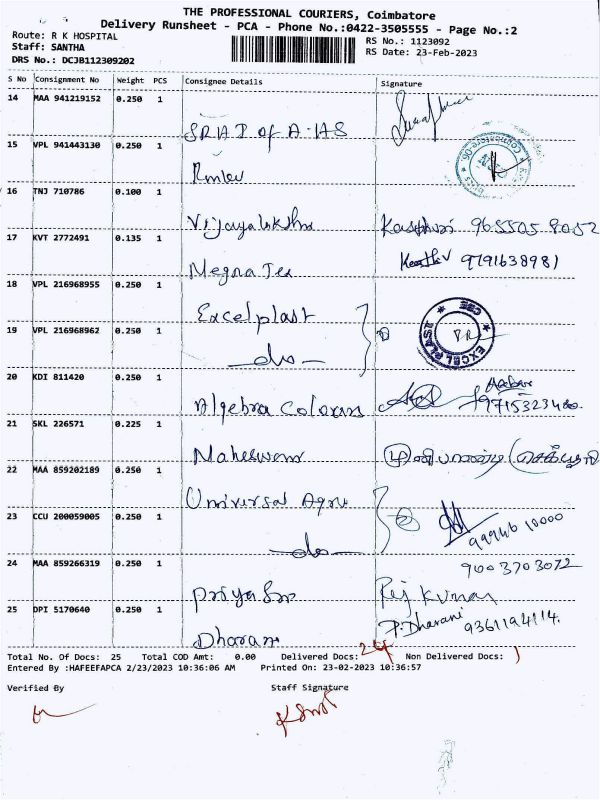 THE PROFESSIONAL COURIERS, Coimbatore
Delivery Runsheet - PCA - Phone No.:0422-3505555 - Page No.:2
Route: R K HOSPITAL
Staff: SANTHA
DRS No.: DCJB112309202
RS No.: 1123092
RS Date: 23-Feb-2023
S No Consignment No Weight PCS Consignee Details Signature
14 MAA 941219152 0.250 1
15 VPL 941443130 0.250 1
16 TNJ 710786 0.100 1
Vijayalakshmi Kasthuri 965505 8052
17 KVT 2772491 0.135 1
Megna Tex 9791638981
18 VPL 216968955 0.250 1
Excelplast
19 VPL 216968962 0.250 1
-do-
EXCEL PLAST CBE
20 KDI 811420 0.250 1
Algebra Colours 9715323480
21 SKL 226571 0.225 1
Maheswari முனியாண்டி
22 MAA 859202189 0.250 1
Universal Agro
23 CCU 200059005 0.250 1
-do- 99946 10000
24 MAA 859266319 0.250 1
9003703072
Priya Raj Kumar
25 DPI 5170640 0.250 1
Dharani P. Dharani 9361194114.
Total No. Of Docs: 25 Total COD Amt: 0.00 Delivered Docs: 24 Non Delivered Docs: 1
Entered By :HAFEEFAPCA 2/23/2023 10:36:06 AM Printed On: 23-02-2023 10:36:57
Verified By Staff Signature